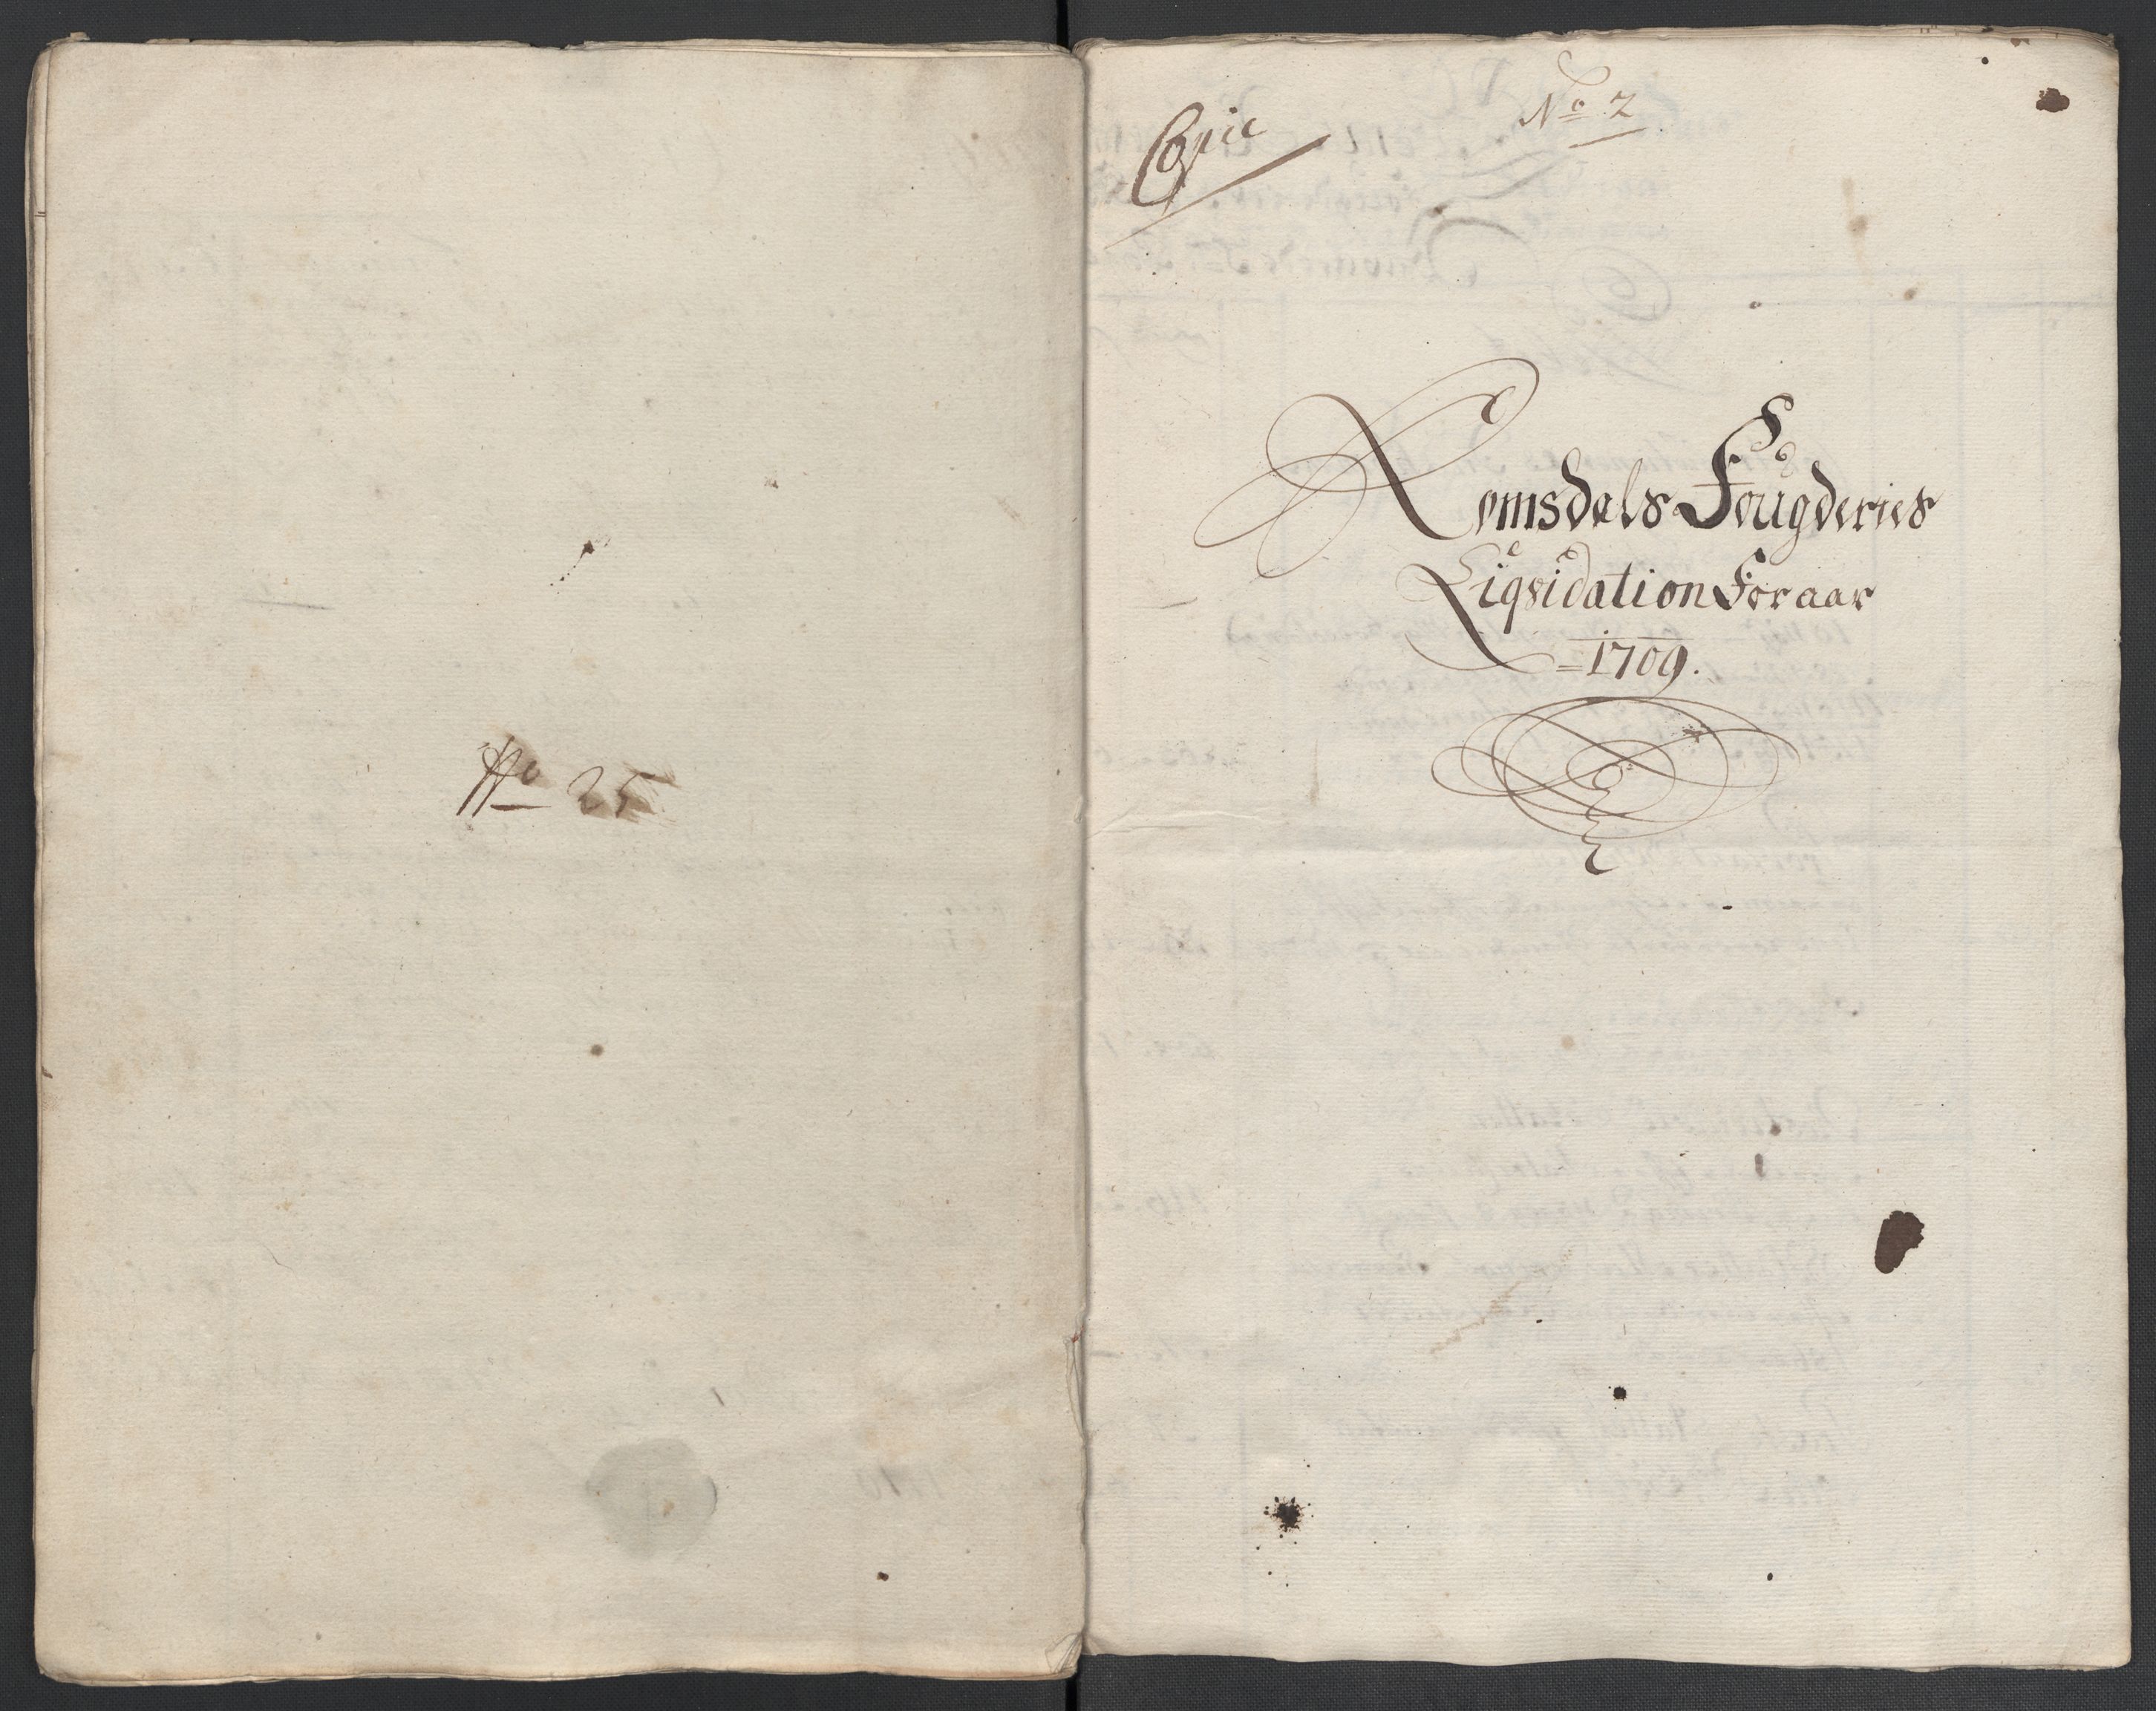 No 25
Copie
No 2
Romsdals Fougderies
Liqvidation For aar
1709.